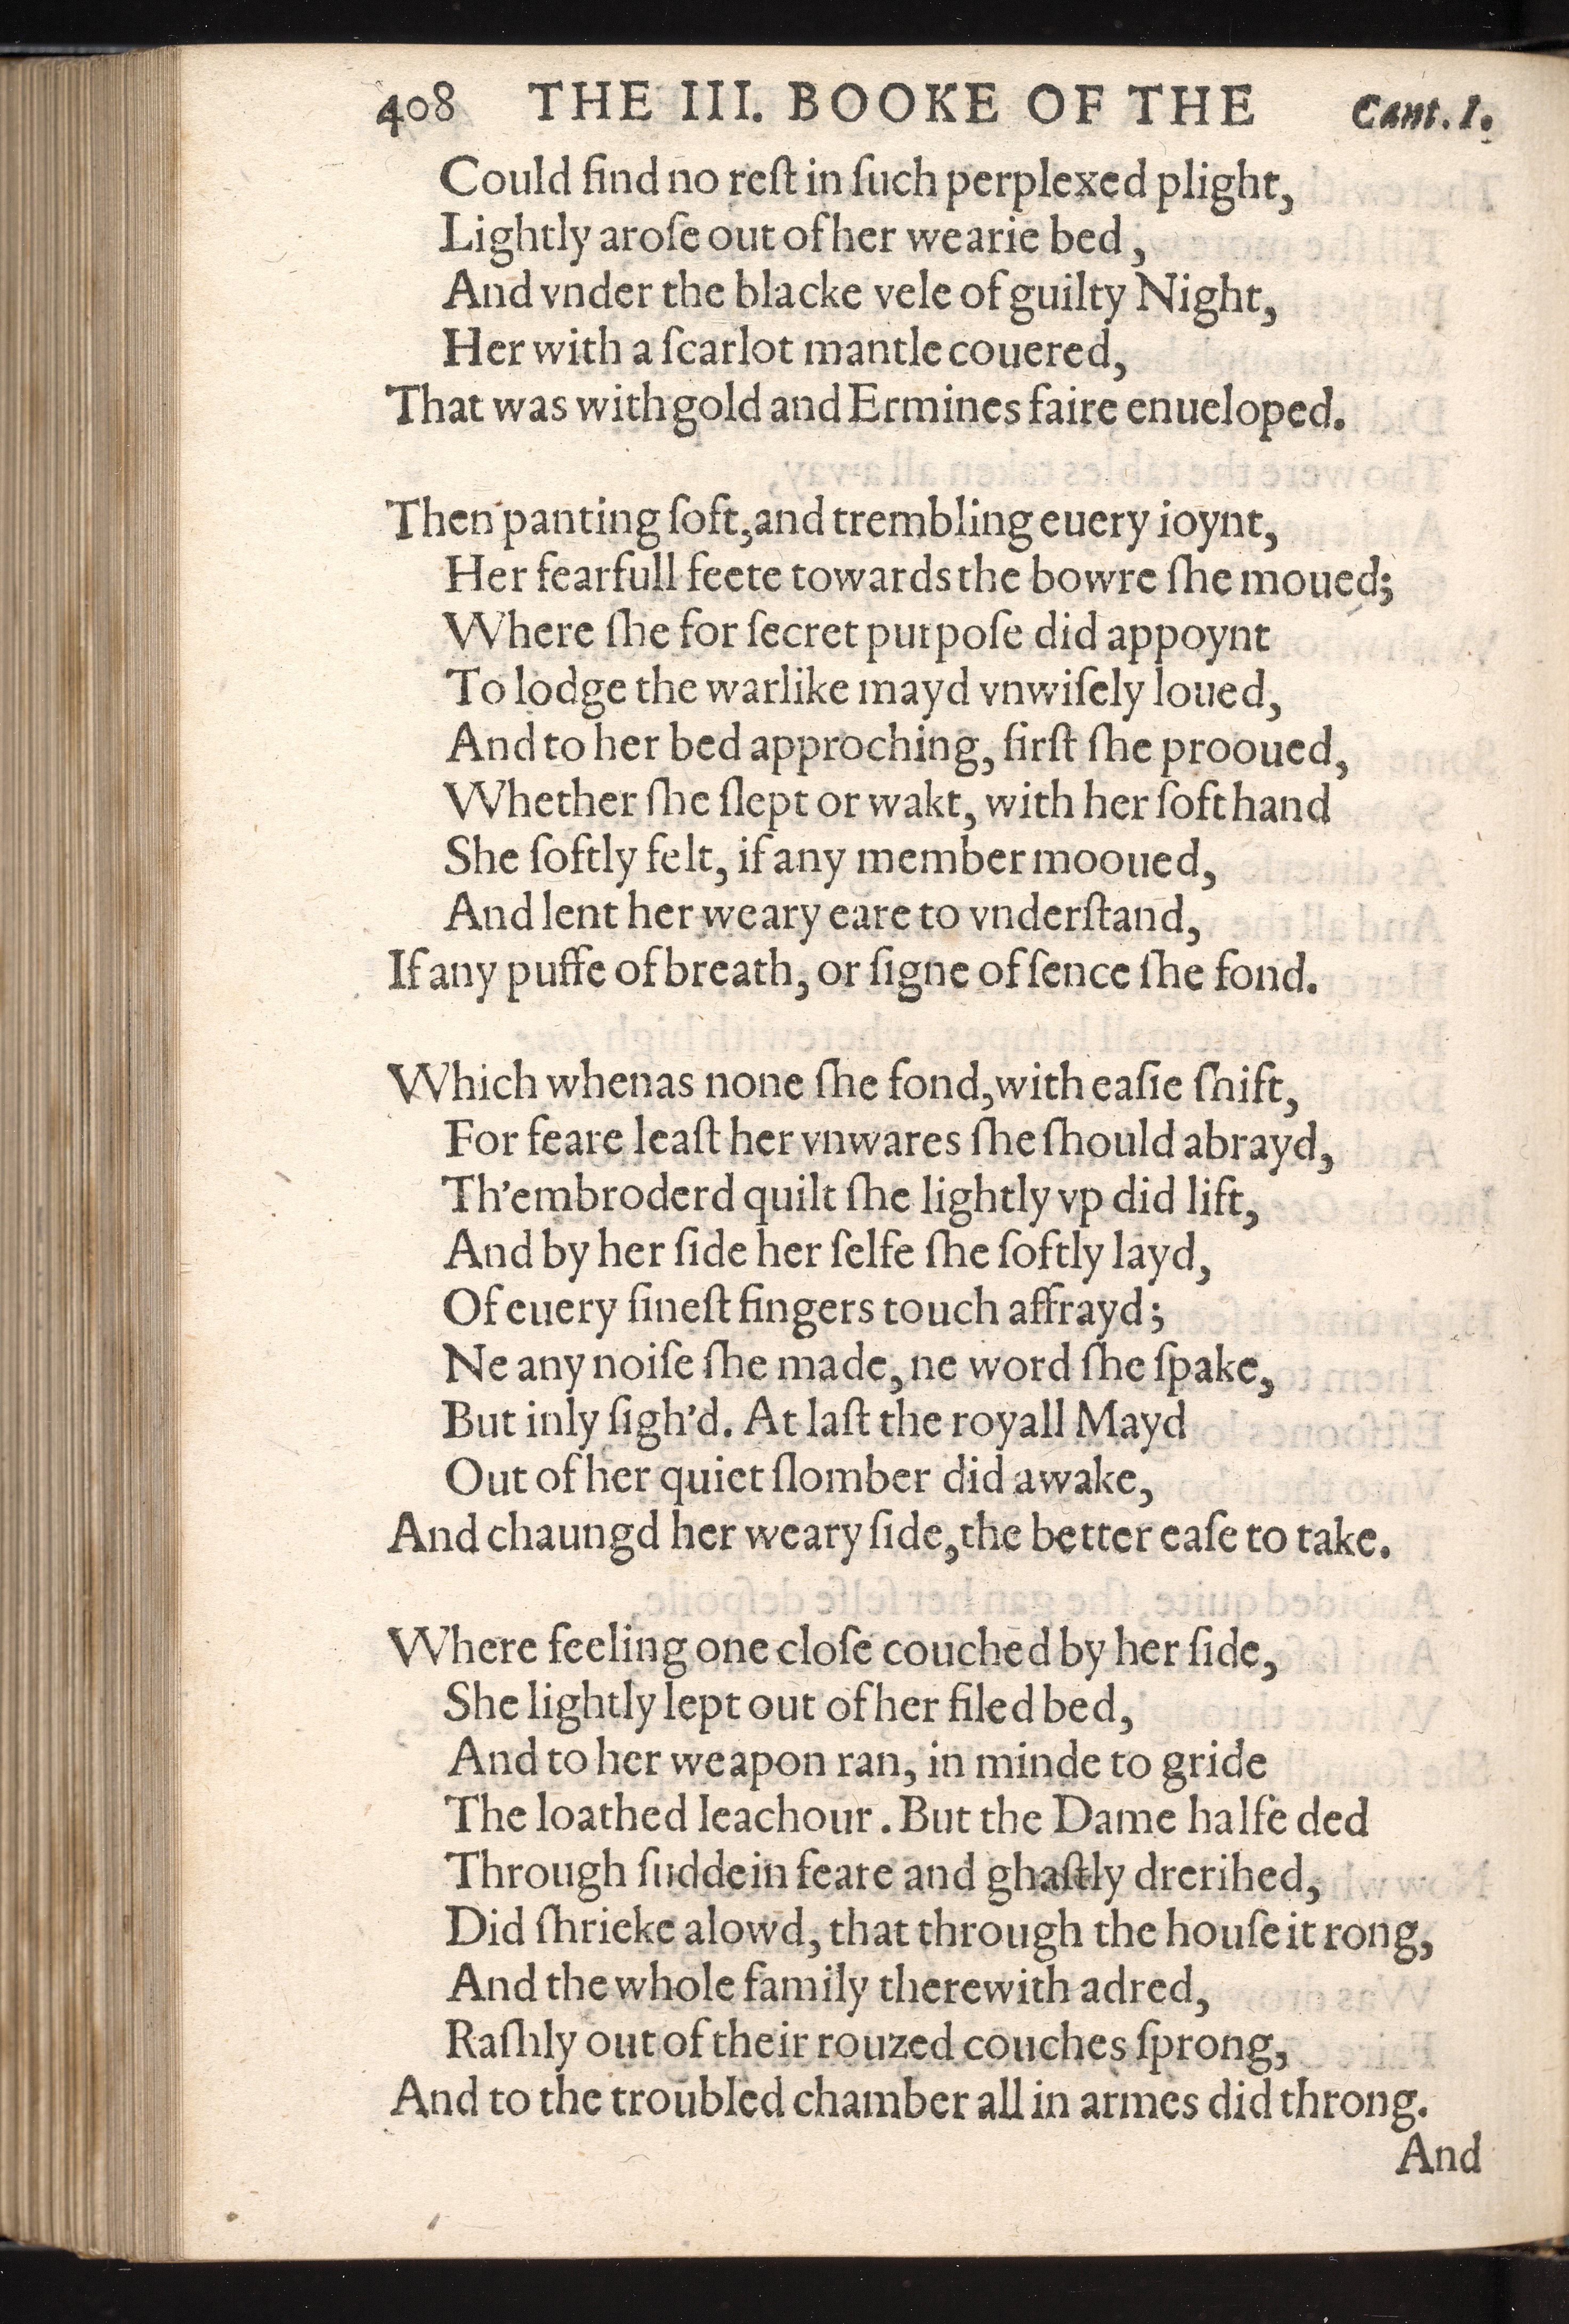 408 THE III. BOOKE OF THE Cant. I.
Could find no reſt in ſuch perplexed plight,
Lightly aroſe out of her wearie bed,
And vnder the blacke vele of guilty Night,
Her with a ſcarlot mantle couered,
That was with gold and Ermines faire enueloped.
Then panting ſoft, and trembling euery ioynt,
Her fearfull feete towards the bowre ſhe moued;
Where ſhe for ſecret purpoſe did appoynt
To lodge the warlike mayd vnwiſely loued,
And to her bed approching, firſt ſhe prooued,
Whether ſhe ſlept or wakt, with her ſoft hand
She ſoftly felt, if any member mooued,
And lent her weary eare to vnderſtand,
If any puffe of breath, or ſigne of ſence ſhe fond.
Which whenas none ſhe fond, with eaſie ſhift,
For feare leaſt her vnwares ſhe ſhould abrayd,
Th'embroderd quilt ſhe lightly vp did lift,
And by her ſide her ſelfe ſhe ſoftly layd,
Of euery fineſt fingers touch affrayd;
Ne any noiſe ſhe made, ne word ſhe ſpake,
But inly ſigh'd. At laſt the royall Mayd
Out of her quiet ſlomber did awake,
And chaungd her weary ſide, the better eaſe to take.
Where feeling one cloſe couched by her ſide,
She lightly lept out of her filed bed,
And to her weapon ran, in minde to gride
The loathed leachour. But the Dame halfe ded
Through ſuddein feare and ghaſtly drerihed,
Did ſhrieke alowd, that through the houſe it rong,
And the whole family therewith adred,
Raſhly out of their rouzed couches ſprong,
And to the troubled chamber all in armes did throng.
And